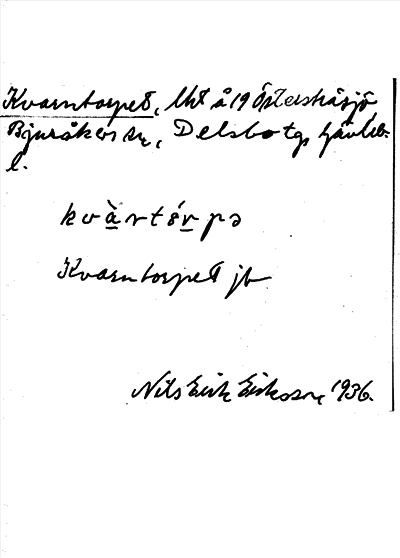 Kvarntorpet, lht å 19 Österstråsjö
Bjuråkers sn, Delsbo tg, Gävleb.
l.
kvàrtórpə
Kvarntorpet jb
Nils Erik Eriksson, 1936.